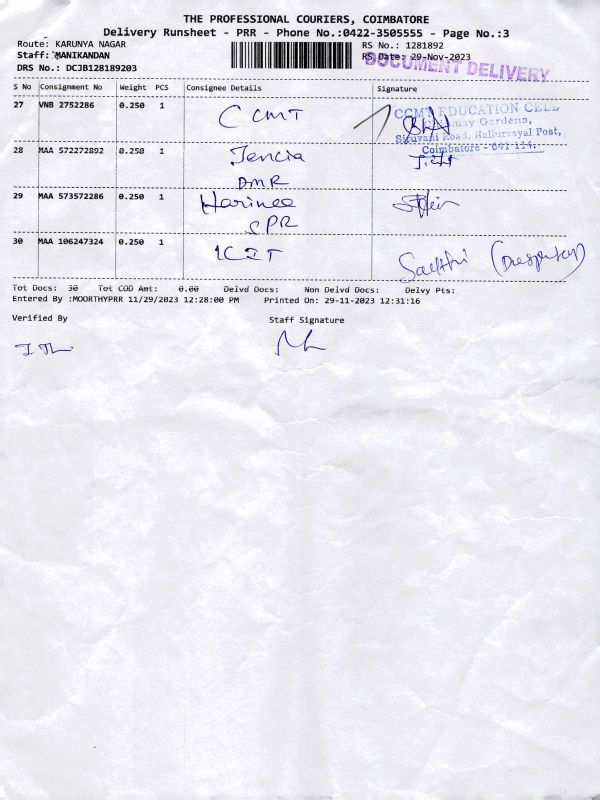 THE PROFESSIONAL COURIERS, COIMBATORE
Delivery Runsheet - PRR - Phone No.:0422-3505555 - Page No.:3
Route: KARUNYA NAGAR
RS No.: 1281892
Staff: MANIKANDAN
RS Date: 29-Nov-2023
DOCUMENT DELIVERY
DRS No.: DCJB128189203
S No Consignment No Weight PCS Consignee Details Signature
27 VNB 2752286 0.250 1 CCMT
CCMT EDUCATION CELL
Gardens,
Siruvani Road, Nallurvayal Post,
Coimbatore - 641 114.
28 MAA 572272892 0.250 1 Jencia
DMR
29 MAA 573572286 0.250 1 Harinee
SPR
30 MAA 106247324 0.250 1 ICIT
Tot Docs: 30 Tot COD Amt: 0.00 Delvd Docs: Non Delvd Docs: Delvy Pts:
Entered By :MOORTHYPRR 11/29/2023 12:28:00 PM Printed On: 29-11-2023 12:31:16
Verified By Staff Signature